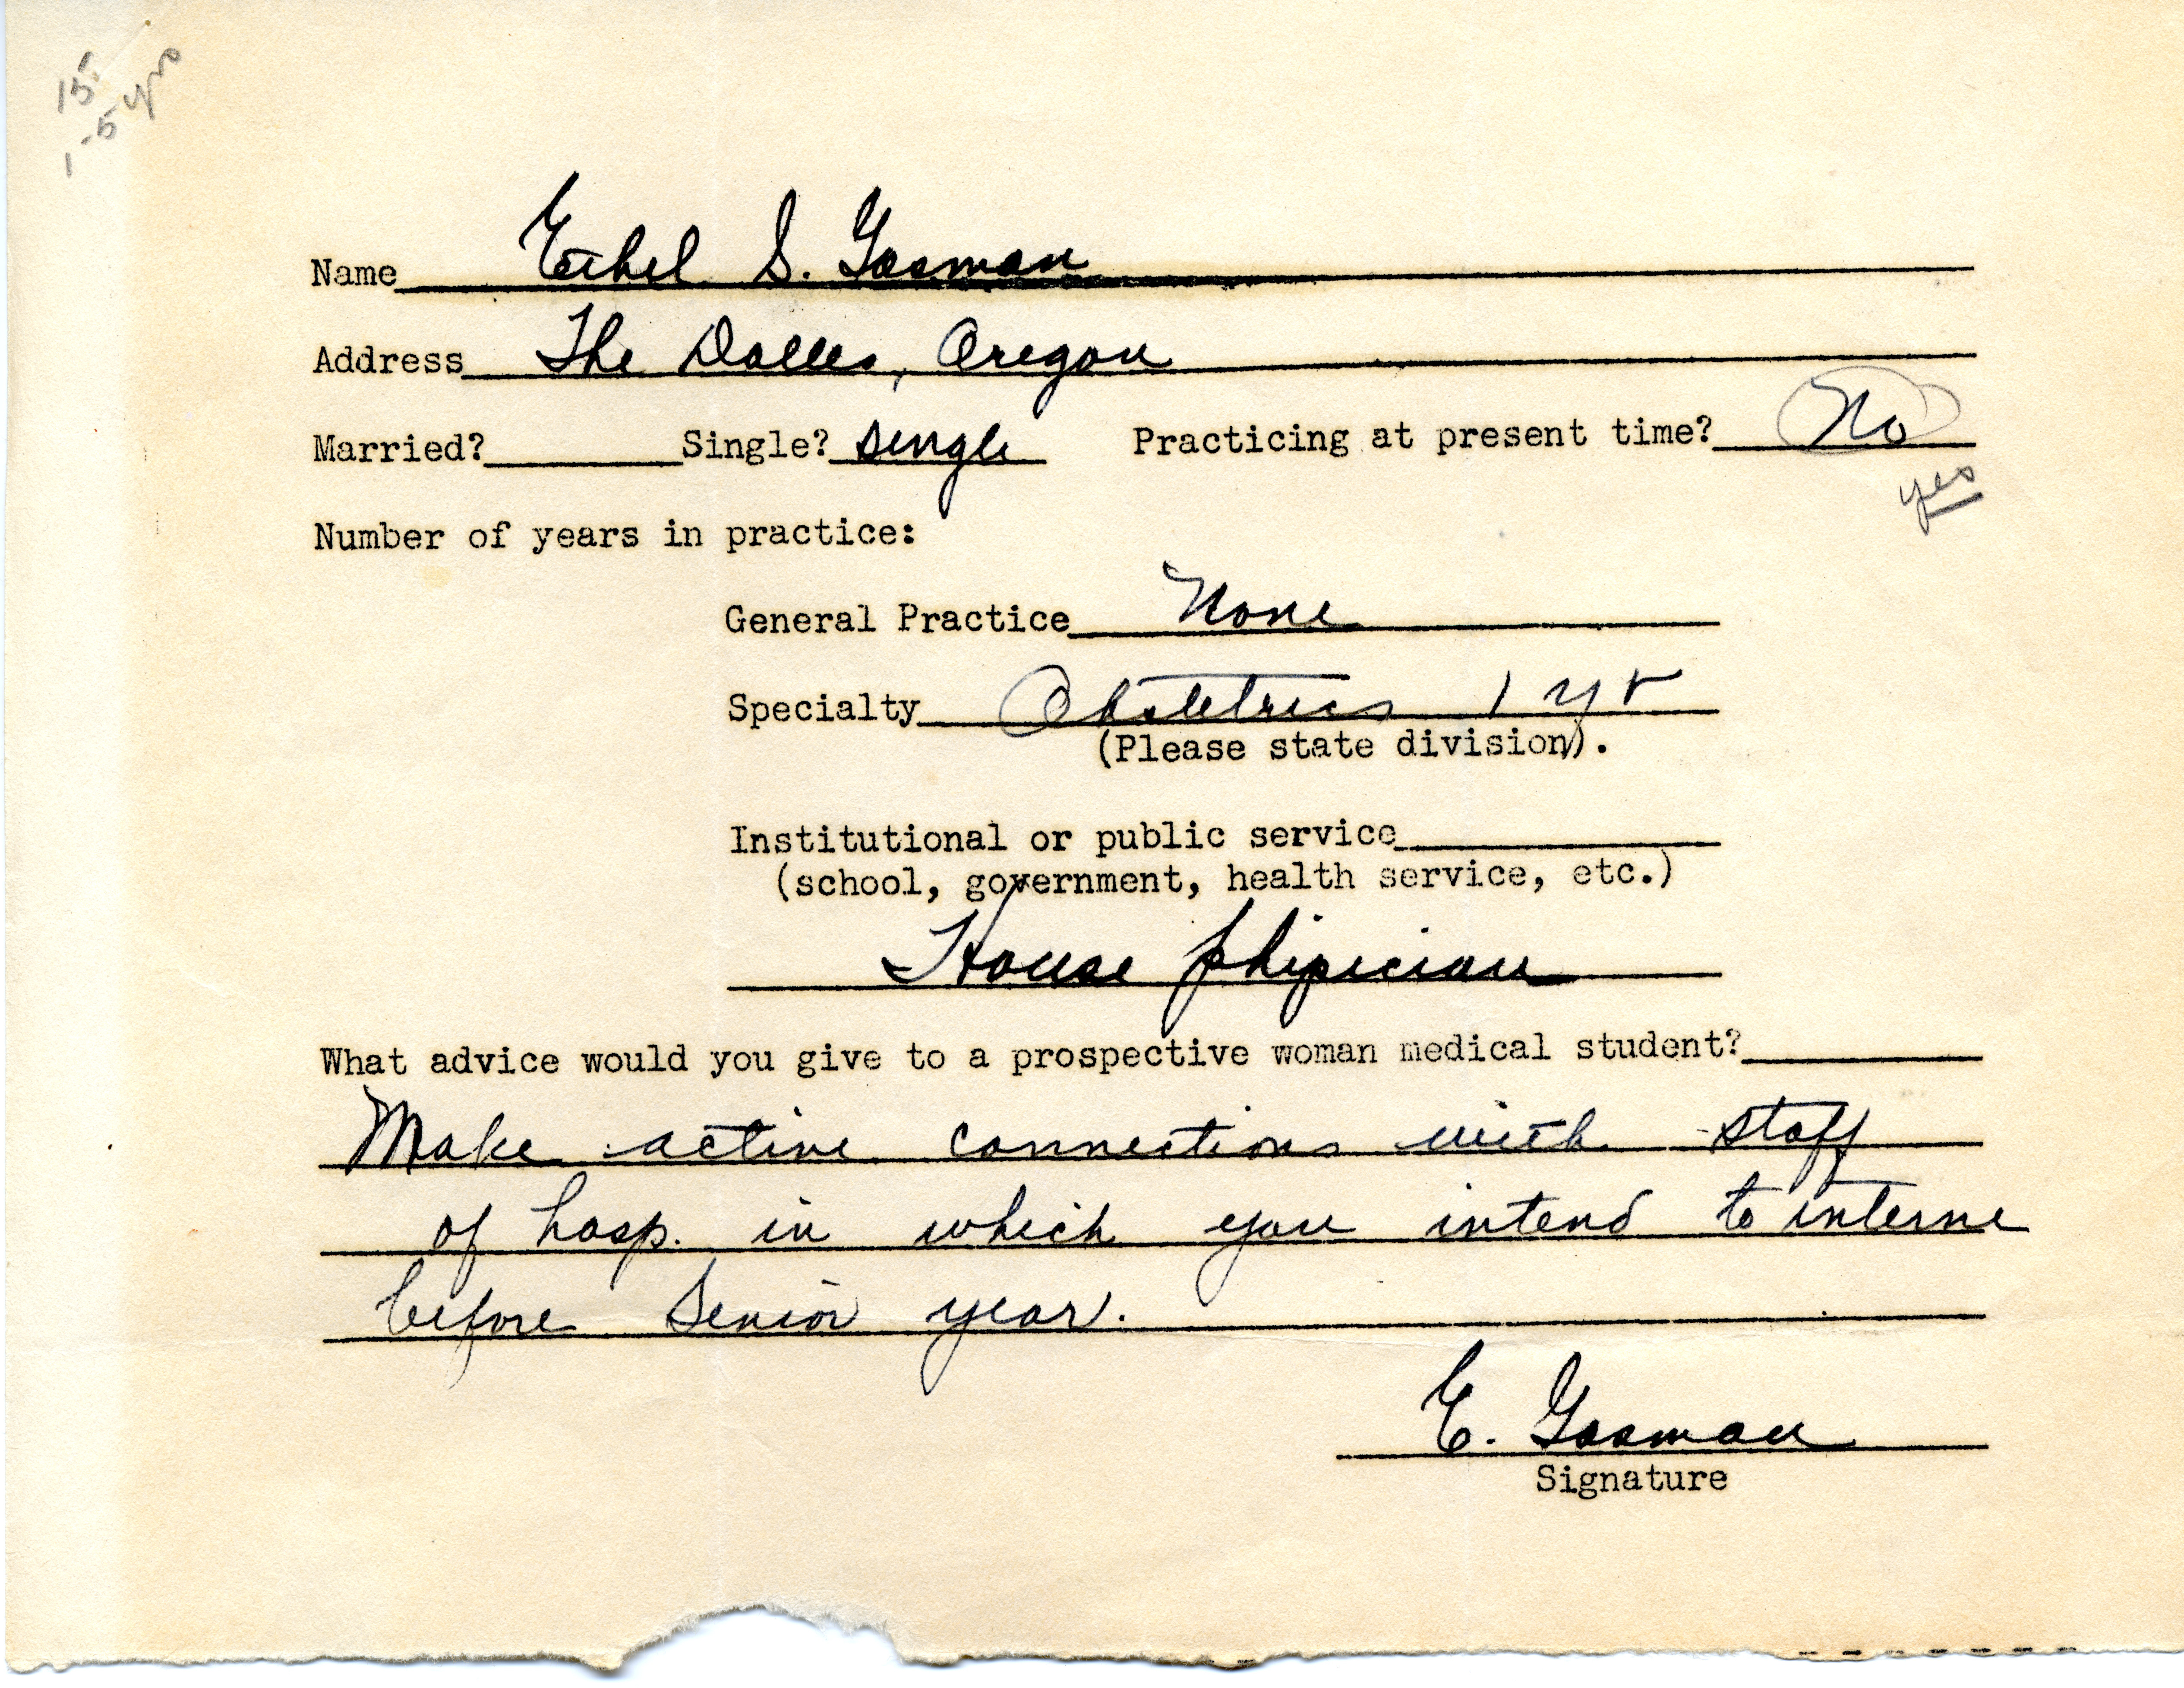 15.
1-5 yrs
Name Ethel S. Gosman
Address The Dalles, Oregon
Married? Single? single Practicing at present time? No
yes
Number of years in practice:
General Practice None
Specialty Obstetrics 1 yr
(Please state division).
Institutional or public service
(school, government, health service, etc.)
House physician
What advice would you give to a prospective woman medical student?
Make active connections with staff
of hosp. in which you intend to interne
before Senior year.
E. Gosman
Signature